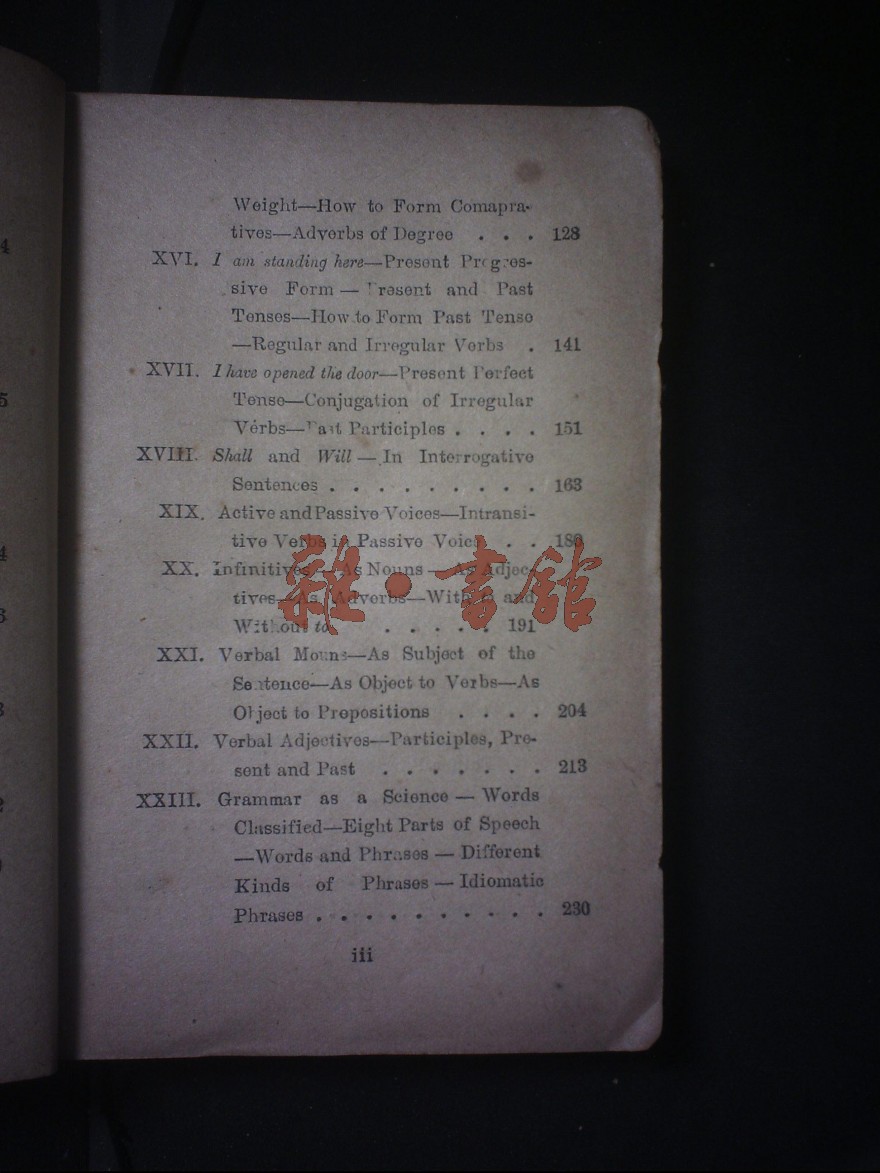 Weight—How to Form Comapra-
tives—Adverbs of Degree . . . 128
XVI. I am standing here—Present Progres-
sive Form — Present and Past
Tenses—How to Form Past Tense
—Regular and Irregular Verbs . 141
XVII. I have opened the door—Present Perfect
Tense—Conjugation of Irregular
Verbs—Past Participles . . . . 151
XVIII. Shall and Will — In Interrogative
Sentences . . . . . . . . . 163
XIX. Active and Passive Voices—Intransi-
tive Verbs in Passive Voice . .
XX. Infinitives — As Nouns — As Adjec-
tives—As Adverbs—With to and
Without to . . . . . 191
XXI. Verbal Nouns—As Subject of the
Sentence—As Object to Verbs—As
Object to Prepositions . . . . 204
XXII. Verbal Adjectives—Participles, Pre-
sent and Past . . . . . . . 213
XXIII. Grammar as a Science — Words
Classified—Eight Parts of Speech
—Words and Phrases — Different
Kinds of Phrases — Idiomatic
Phrases . . . . . . . . . . 230
iii
雜·書館